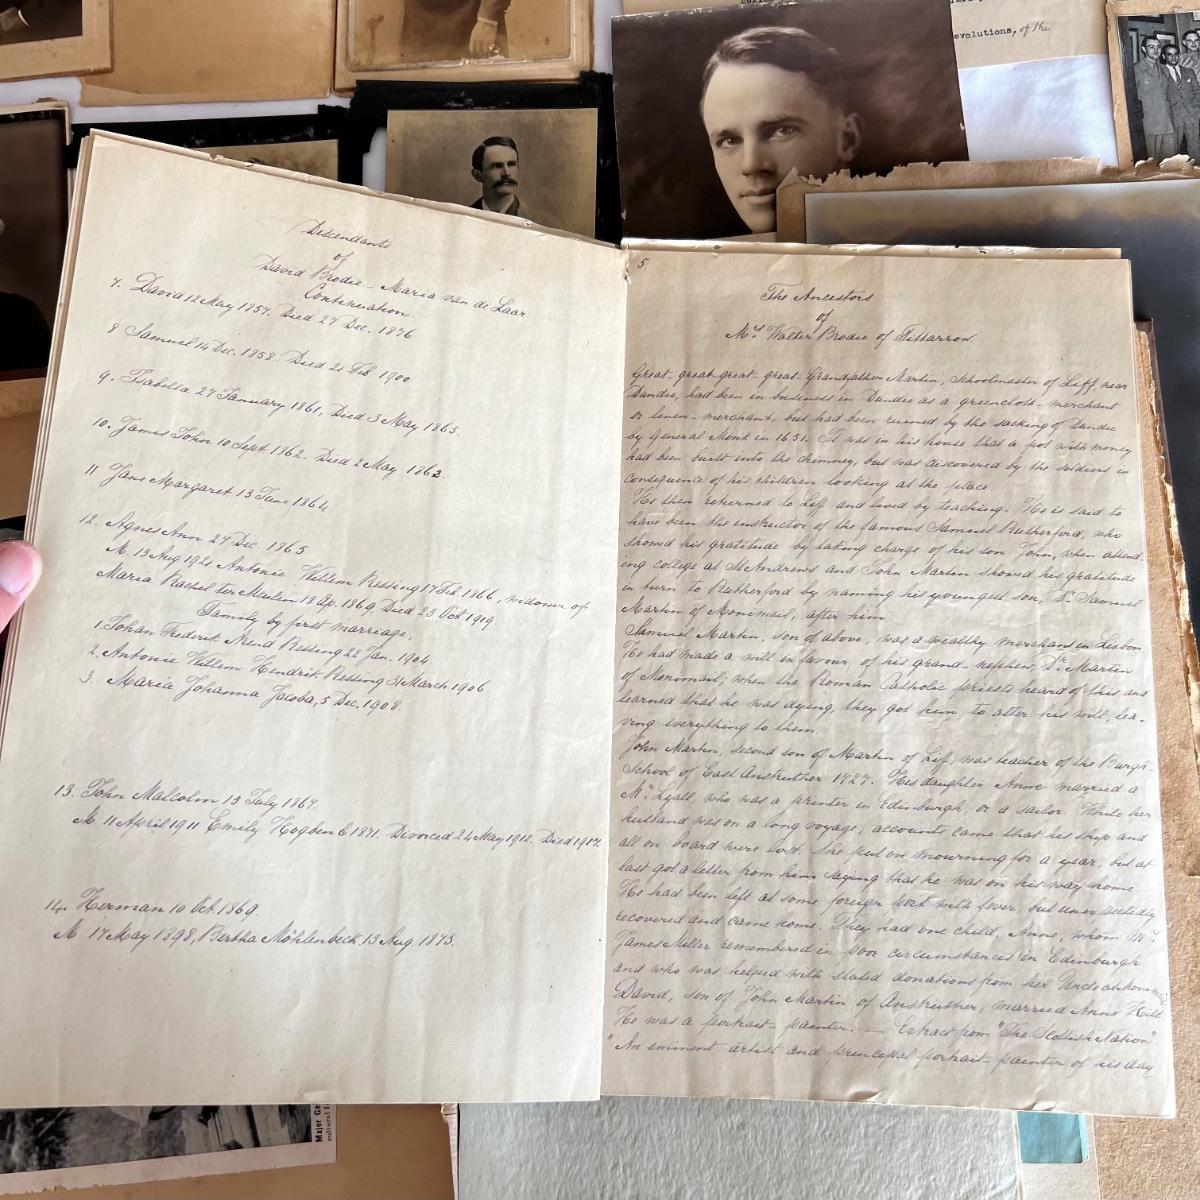 evolutions, of the
Descendants
of
David Brodie - Maria van de Laar.
Continuation.
7. David 12 May 1857. Died 27 Dec. 1876.
8 Samuel 14 Dec. 1858. Died 21 Feb. 1900
9. Isabella 27 January 1861, Died 3 May 1865.
10. James John 10 Sept. 1862. Died 2 May 1863.
11 Jane Margaret 13 June 1864
12. Agnes Ann 27 Dec. 1865
M. 13 Aug 1921 Antonie Willem Ressing 17 Feb. 1866, widower of
Maria Rachel ter Meulen 18 Ap. 1869, Died 23 Oct 1919
Family by first marriage,
1. Johan Frederik Ressing 22 Jan. 1904.
2. Antonie Willem Hendrik Ressing 31 March 1906
3. Maria Johanna Jacoba, 5 Dec. 1908.
13. John Malcolm 13 July 1867.
M. 11 April 1911 Emily Hogben 6 1871. Divorced 24 May 1912. Died 1917.
14. Herman 10 Oct. 1869.
M. 17 May 1898, Bertha Möhlenbeck. 13 Aug. 1873.
5.
The Ancestors
of
Mrs Walter Brodie of Pittarrow.
Great-great-great-great-Grandfather Martin, Schoolmaster of Liff, near
Dundee, had been in business in Dundee as a greencloth-merchant
or linen-merchant, but had been ruined by the sacking of Dundee
by General Monk in 1651. It was in his house that a pot with money
had been built into the chimney, but was discovered by the soldiers in
consequence of his children looking at the place.
He then returned to Liff and lived by teaching. He is said to
have been the instructor of the famous Samuel Rutherford, who
showed his gratitude by taking charge of his son John, when attend-
ing college at St Andrews and John Martin showed his gratitude
in turn to Rutherford by naming his youngest son, Dr. Samuel
Martin of Monimail, after him.
Samuel Martin, son of above, was a wealthy merchant in Lisbon
He had made a will in favour of his grand-nephew, Dr. Martin
of Monimail; when the Roman Catholic priests heard of this and
learned that he was dying, they got him to alter his will, lea-
ving everything to them.
John Martin, second son of Martin of Liff, was teacher of the Burgh-
School of East Anstruther 1727. His daughter Anne married a
Mr. Lyall, who was a printer in Edinburgh, or a sailor. While her
husband was on a long voyage, accounts came that his ship and
all on board were lost. She put on mourning for a year, but at
last got a letter from him saying that he was on his way home
He had been left at some foreign port with fever, but unexpectedly
recovered and came home. They had one child, Anne, whom Mrs.
James Miller remembered in poor circumstances in Edinburgh
and who was helped with stated donations from her Uncle at Monimail
David, son of John Martin of Anstruther, married Anne Hill
He was a portrait-painter. — Extract from "The Scottish Nation"
"An eminent artist and principal portrait-painter of his day
Major Ge
cultural I